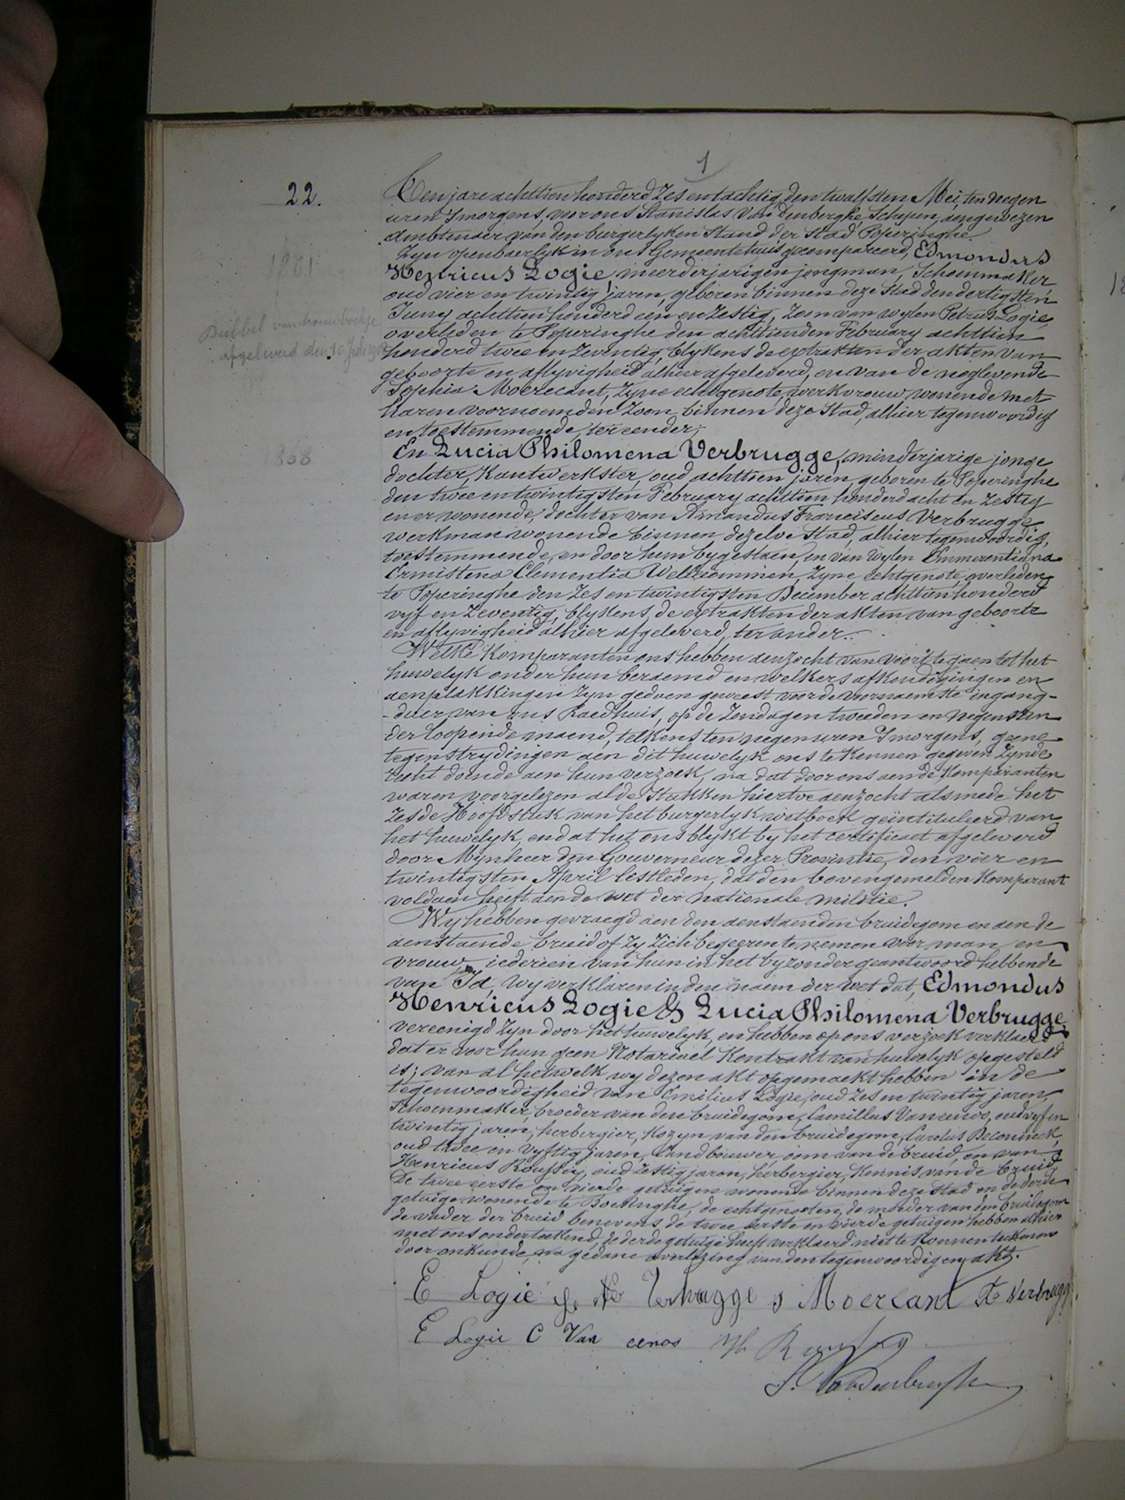 1
22.
Ten jare achttien honderd zes en tachtig den twalfsten Mei, ten negen
uren smorgens, voor ons Stanislas Vandenberghe Schepen, aengewezen
ambtenaer van den burgerlyken stand der stad Poperinghe
Zyn openbaerlyk in ons Gemeentehuis gecompareerd, Edmondus
Henricus Logie, meerderjarigen jongman, Schoenmaker
oud vier en twintig jaren, geboren binnen deze Stad den dertigsten
Juny achttien honderd een en zestig, zoon van wylen Petrus Logie,
overleden te Poperinghe den achttienden February achttien
honderd twee en zeventig, blykens de extrakten der akten van
geboorte en aflyvigheid alhier afgeleverd, en van de noglevende
Sophia Moereant, zyne echtgenote, werkvrouw, wonende met
haren voornoemden zoon, binnen deze Stad, alhier tegenwoordig
en toestemmende, ter eender;
En Lucia Philomena Verbrugge, minderjarige jonge
dochter, Kantwerkster, oud achttien jaren, geboren te Poperinghe
den twee en twintigsten February achttien honderd acht en zestig
en er wonende, dochter van Amandus Franciscus Verbrugge
werkman wonende binnen dezelve Stad, alhier tegenwoordig,
toestemmende, en door hem bygestaen, en van wylen Emmerentiana
Clementia zyne echtgenote, overleden
te Poperinghe den zes en twintigsten December achttien honderd
vyf en zeventig, blykens de extrakten der akten van geboorte
en aflyvigheid alhier afgeleverd, ter ander.
Welke Komparanten ons hebben aenzocht van voort te gaen tot het
huwelyk onder hun beraemd en welkers afkondigingen en
aenplakkingen zyn gedaen geweest voor de voornaemste ingang-
-deur van ons Raedhuis, op de Zondagen tweeden en negensten
der loopende maend, telkens ten negen uren smorgens, geene
tegenstrydigen aen dit huwelyk ons te kennen gegeven zynde
recht doende aen hun verzoek, na dat door ons aen de Komparanten
waren voorgelezen al de Stukken hiertoe aenzocht alsmede het
zesde Hoofdstuk van het burgerlyk wetboek geintituleerd van
het huwelyk, en dat het ons blykt by het certificaet afgeleverd
door Mynheer den Gouverneur dezer Provintie, den vier en
twintigsten April lestleden, dat den bovengemelden Komparant
voldaen heeft aen de wet der nationale militie.
Wy hebben gevraegd aen den aenstaenden bruidegom en aen de
aenstaende bruid of zy zich begeeren te nemen voor man en
vrouw, iederien van hun in het byzonder geantwoord hebbende
van Ja, wy verklaren in den naem der wet dat, Edmondus
Henricus Logie & Lucia Philomena Verbrugge
vereenigd zyn door het huwelyk, en hebben op ons verzoek verklaerd
dat er voor hun geen Notarieel Kontrakt van huwelyk opgesteld
is; van al hetwelk wy dezen akt opgemaekt hebben in de
tegenwoordigheid van Emilius Logie, oud zes en twintig jaren,
Schoenmaker, broeder van den bruidegom, Camillus oud vyf en
twintig jaren, herbergier, kozyn van den bruidegom, Carolus
oud twee en vyftig jaren, landbouwer, oom van de bruid en van
Henricus oud zestig jaren, herbergier, kennis van de bruid,
De twee eerste en vierde getuigen wonende binnen deze Stad en de derde
getuige wonende te Boesinghe, de echtgenoten, de moeder van den bruidegom
de vader der bruid benevens de twee eerste en vierde getuigen hebben alhier
met ons onderteekend, de derde getuige heeft verklaerd niet te kunnen teekenen
door onkunde, na gedane overlezing van den tegenwoordigen akt.
E Logie Verbrugge S Moerlant Verbrugge
E Logie C Van
S. Vandenberghe